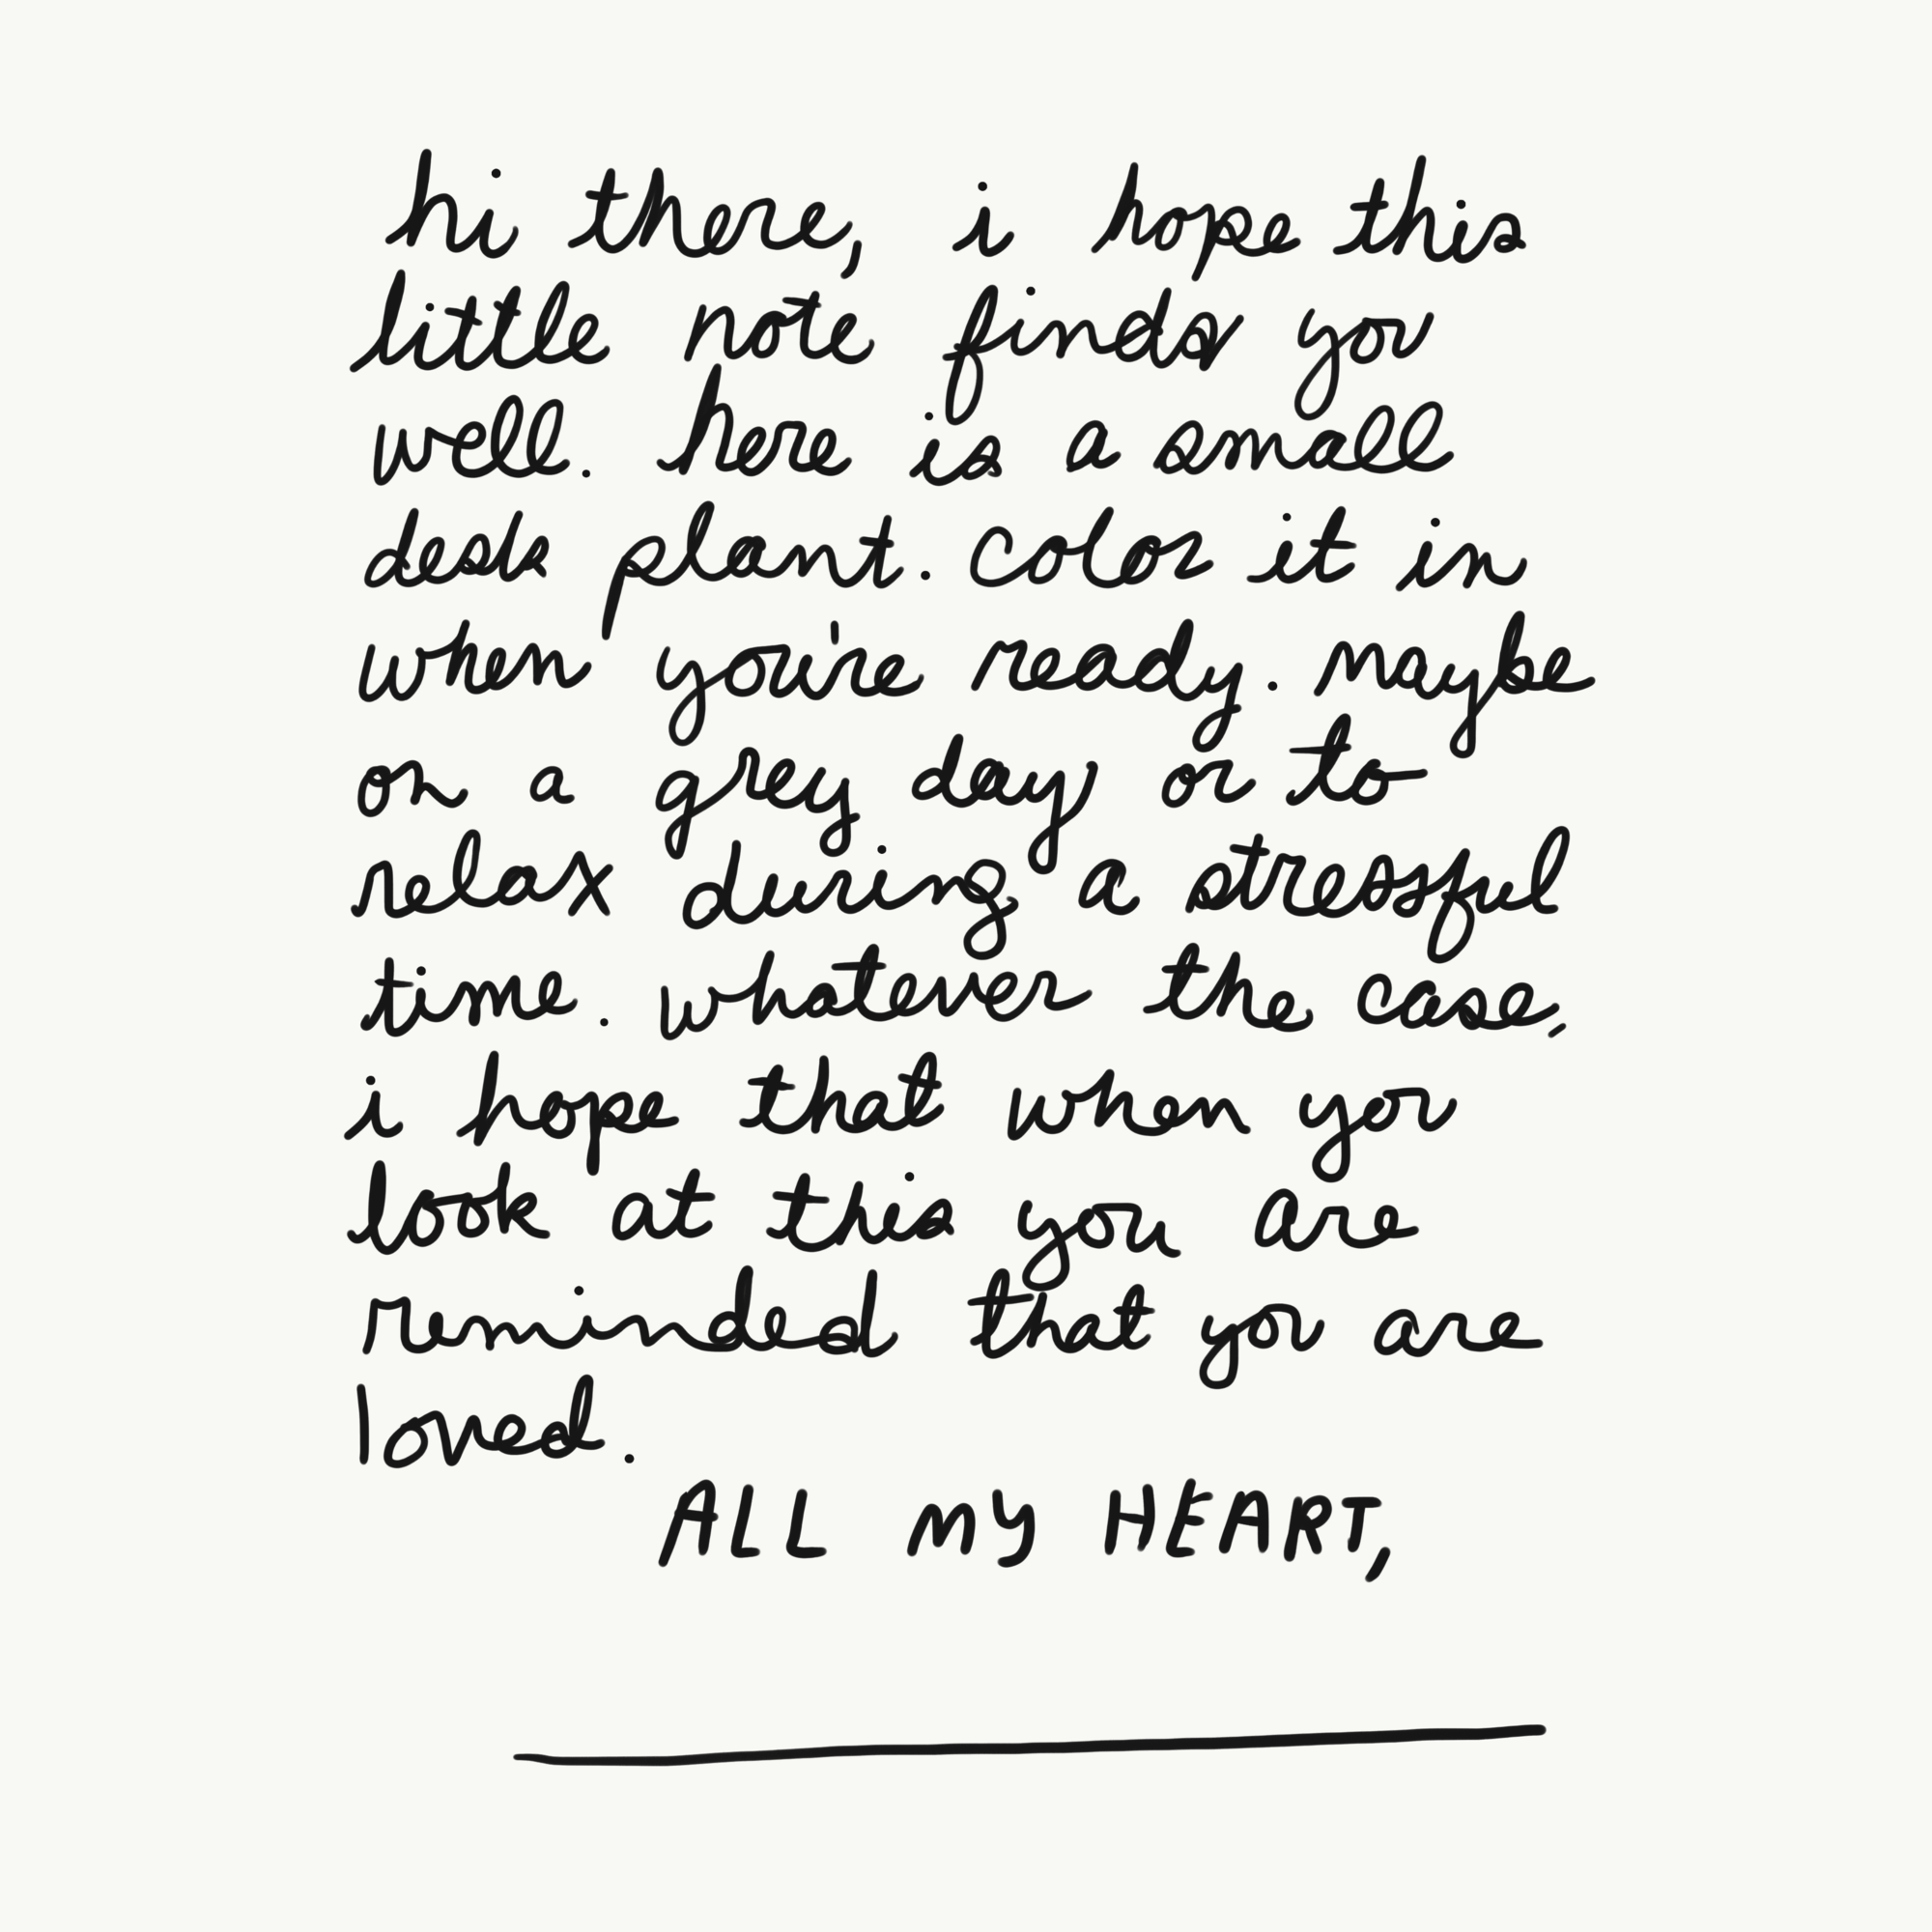 hi there, i hope this
little note finds you
well. here is a small
desk plant. color it in
when you're ready. maybe
on a grey day or to
relax during a stressful
time. whatever the case,
i hope that when you
look at this you are
reminded that you are
loved.
ALL MY HEART,